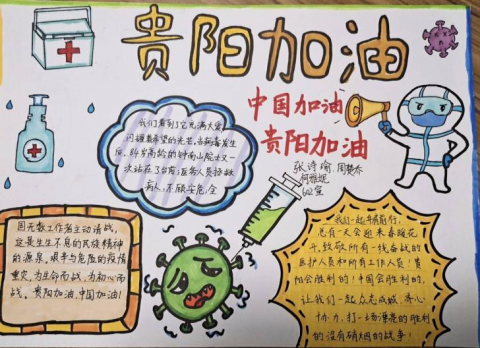 贵阳加油
中国加油
贵阳加油
张诗瑜 周梦乔
602室
我们看到了它充满大爱
闪耀着希望的光芒，当病毒发生
后，84岁高龄的钟南山院士又一
次站在了台前，医务人员拯救
病人，不顾安危，全
因无数工作者主动请战，
定是生生不息的民族精神
的源泉，艰辛与危险的疫情
重灾，为生命而战，为初心而
战。贵阳加油，中国加油！
我们一起平稳前行，
总有一天会迎来春暖花
开，致敬所有一线奋战的
医护人员和所有工作人员！贵
阳会胜利的！中国会胜利的，
让我们一起众志成城，齐心
协力，打一场漂亮的胜利
的没有硝烟的战争！